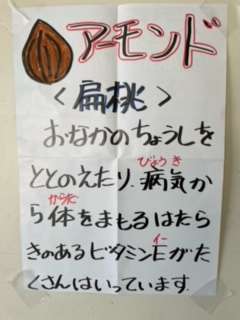 アーモンド
＜扁桃＞
おなかのちょうしを
ととのえたり、病気か
びょうき
ら体をまもるはたら
からだ
きのあるビタミンEがた
イー
くさんはいっています。